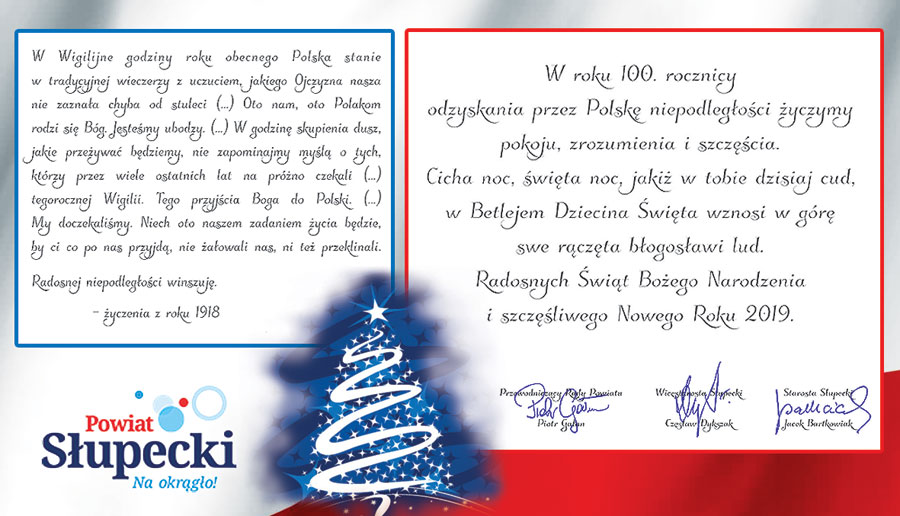 W Wigilijne godziny roku obecnego Polska stanie
w tradycyjnej wieczerzy z uczuciem, jakiego Ojczyzna nasza
nie zaznała chyba od stuleci (...) Oto nam, oto Polakom
rodzi się Bóg. Jesteśmy ubodzy. (...) W godzinę skupienia dusz,
jakie przeżywać będziemy, nie zapominajmy myślą o tych,
którzy przez wiele ostatnich lat na próżno czekali (...)
tegorocznej Wigilii. Tego przyjścia Boga do Polski. (...)
My doczekaliśmy. Niech oto naszem zadaniem życia będzie,
by ci co po nas przyjdą, nie żałowali nas, ni też przeklinali.
Radosnej niepodległości winszuję.
– życzenia z roku 1918
W roku 100. rocznicy
odzyskania przez Polskę niepodległości życzymy
pokoju, zrozumienia i szczęścia.
Cicha noc, święta noc, jakiż w tobie dzisiaj cud,
w Betlejem Dziecina Święta wznosi w górę
swe rączęta błogosławi lud.
Radosnych Świąt Bożego Narodzenia
i szczęśliwego Nowego Roku 2019.
Przewodniczący Rady Powiatu
Piotr Gałan
Wicestarosta Słupecki
Czesław Dykszak
Starosta Słupecki
Jacek Bartkowiak
Powiat
Słupecki
Na okrągło!